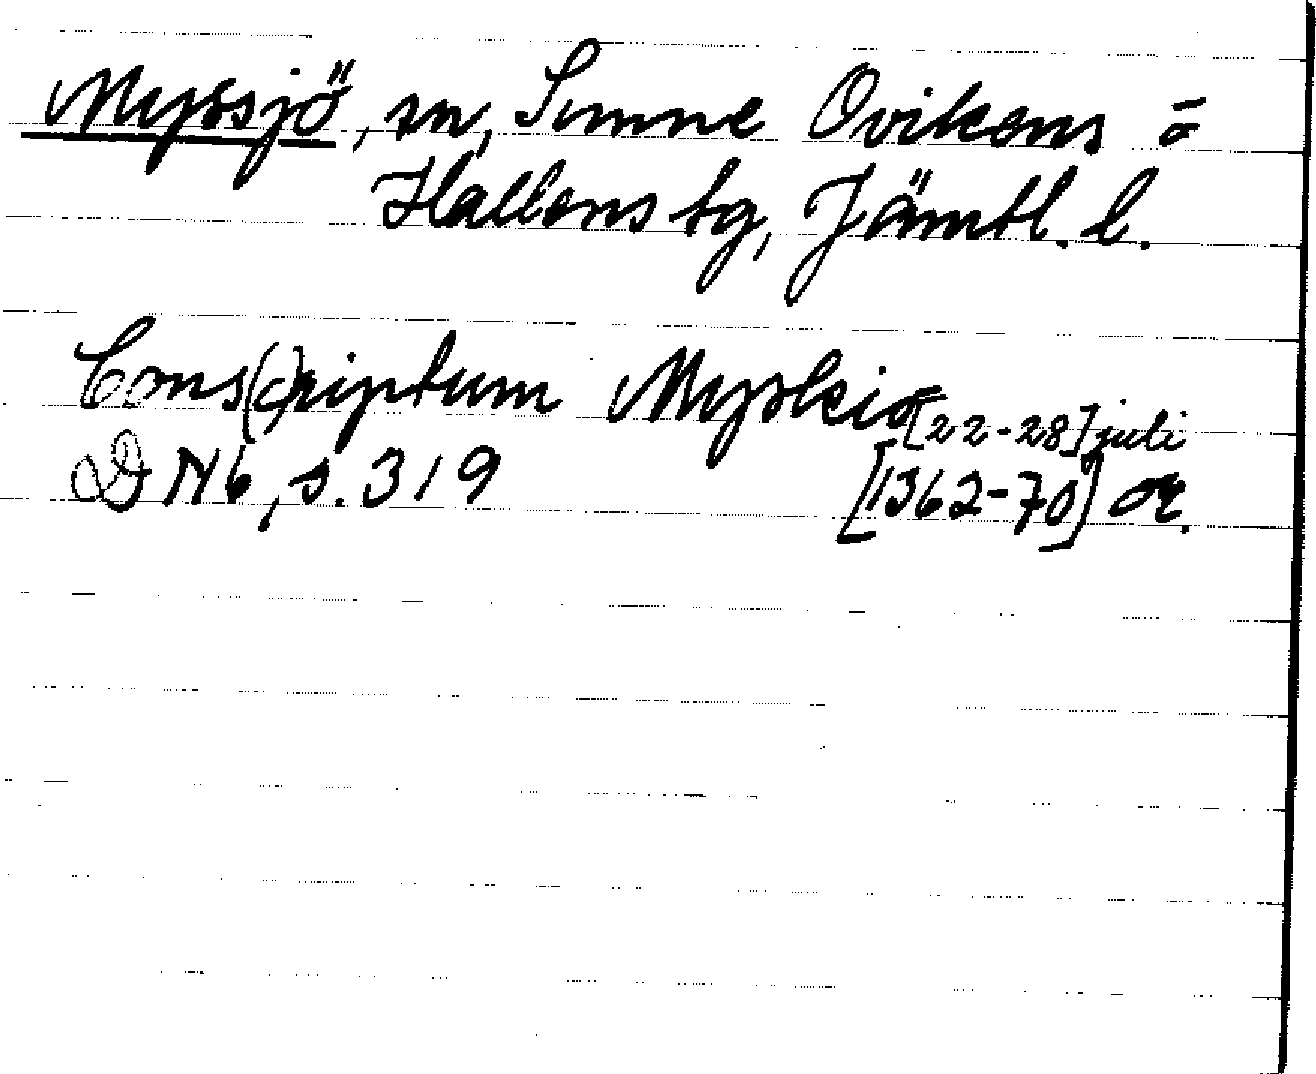 Myssjö, sn, Sunne Ovikens o
Hallens tg, Jämtl. l.
Cons(c)riptum Myskio [22-28] juli
DN 6, s. 319 [1362-70] or.